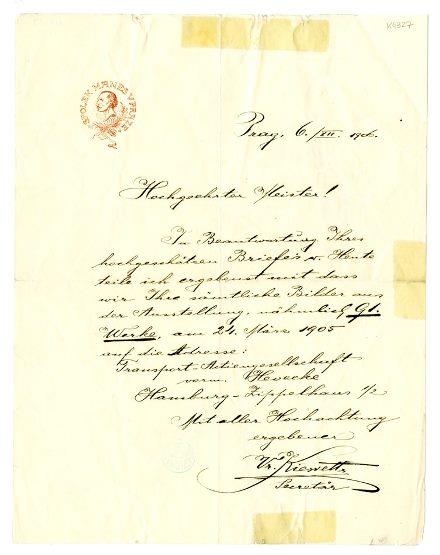 K4327
SPOLEK MANES V PRAZE
Prag, 6./VII. 1906.
Hochgeehrter Meister!
In Beantwortung Ihres
hochgeschätzen Briefes v. Heute
teile ich ergebenst mit dass
wir Ihre sämtliche Bilder aus
der Ausstellung, nähmlich 91.
Werke, am 24. März 1905
auf die Adresse:
Transport-Actiengesellschaft
vorm. Hevecke
Hamburg-Zippelhaus 1/2
Mit aller Hochachtung
ergebener
Secretär